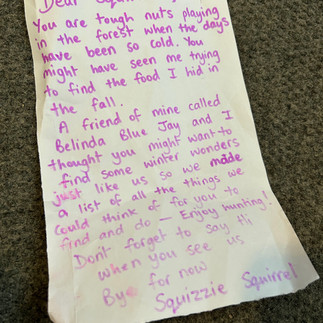 Dear
You are tough nuts playing
in the forest when the days
have been so cold. You
might have seen me trying
to find the food I hid in
the fall.
A friend of mine called
Belinda Blue Jay and I
thought you might want to
find some winter wonders
just like us so we made
a list of all the things we
could think of for you to
find and do — Enjoy hunting!
Don't forget to say Hi
when you see us
Bye for now
Squizzie Squirrel